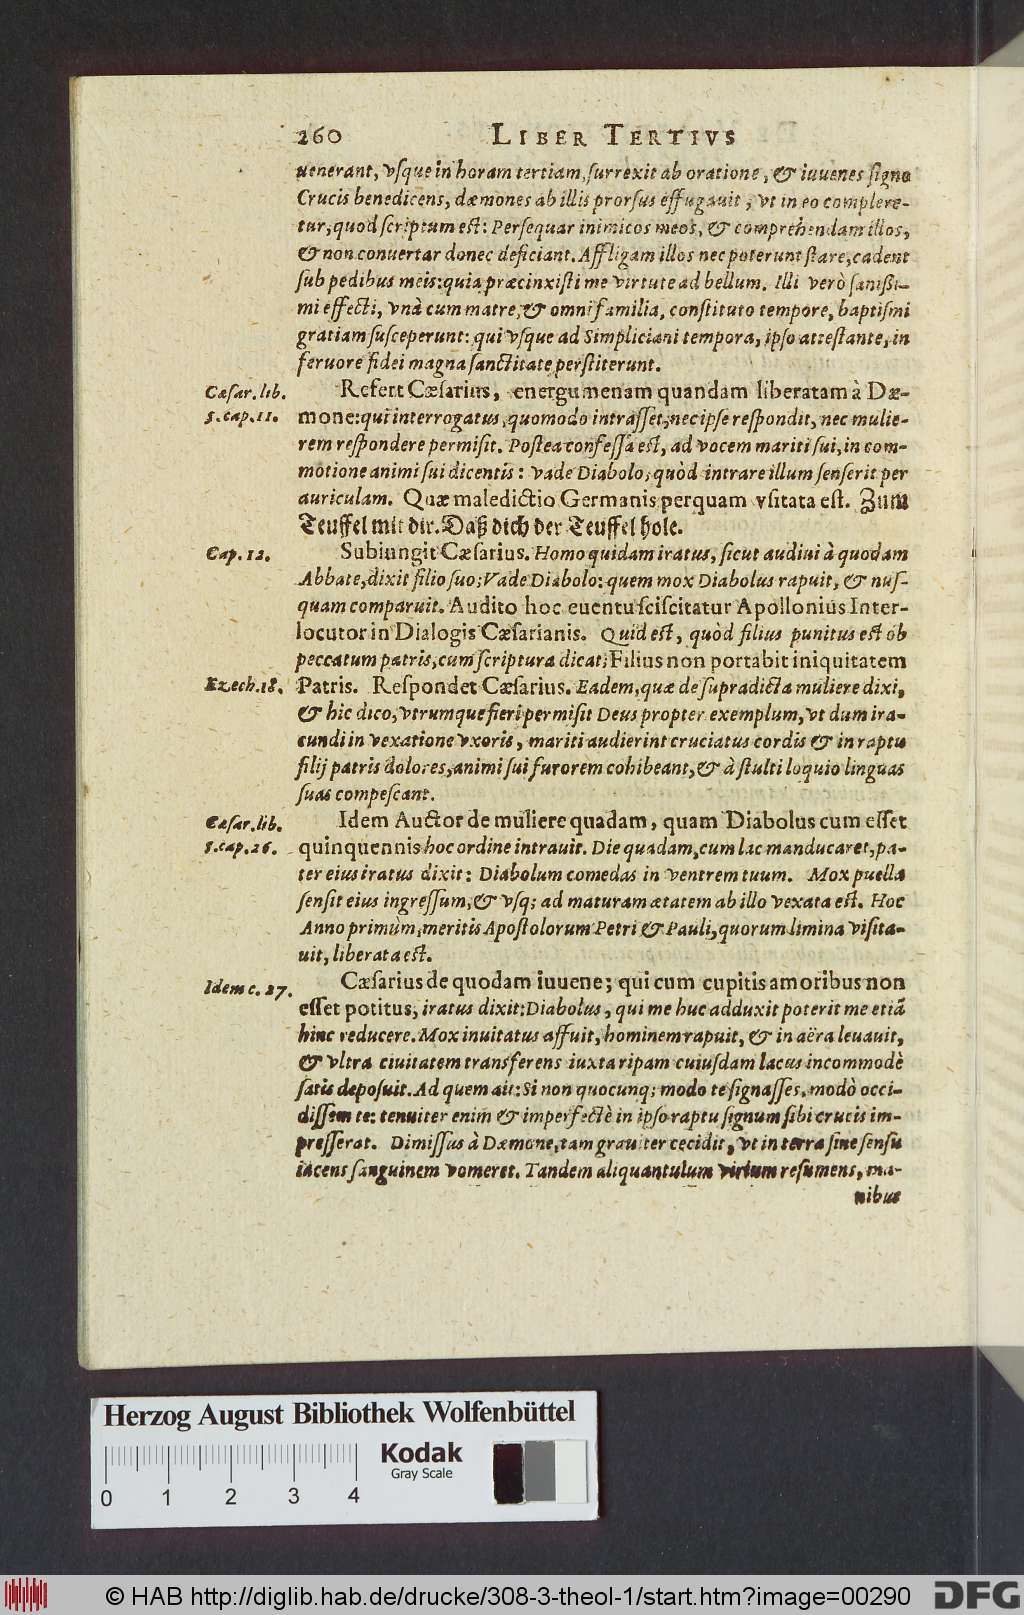 260 LIBER TERTIVS
uenerant, vsque in horam tertiam, surrexit ab oratione, & iuuenes signo
Crucis benedicens, dæmones ab illis prorsus effugauit, vt in eo complere-
tur, quod scriptum est: Persequar inimicos meos, & comprehendam illos,
& non conuertar donec deficiant. Affligam illos nec poterunt stare, cadent
sub pedibus meis: quia præcinxisti me virtute ad bellum. Illi verò sanißi-
mi effecti, vnà cum matre, & omni familia, constituto tempore, baptismi
gratiam susceperunt: qui vsque ad Simpliciani tempora, ipso attestante, in
feruore fidei magna sanctitate perstiterunt.
Cæsar. lib. Refert Cæsarius, energumenam quandam liberatam à Dæ-
5. cap. 11. mone: qui interrogatus, quomodo intrasset, nec ipse respondit, nec mulie-
rem respondere permisit. Postea confessa est, ad vocem mariti sui, in com-
motione animi sui dicentis: vade Diabolo, quòd intrare illum senserit per
auriculam. Quæ maledictio Germanis perquam vsitata est. Zum
Teuffel mit dir. Daß dich der Teuffel hole.
Cap. 12. Subiungit Cæsarius. Homo quidam iratus, sicut audiui à quodam
Abbate, dixit filio suo; Vade Diabolo: quem mox Diabolus rapuit, & nus-
quam comparuit. Audito hoc euentu sciscitatur Apollonius Inter-
locutor in Dialogis Cæsarianis. Quid est, quòd filius punitus est ob
peccatum patris, cum scriptura dicat; Filius non portabit iniquitatem
Ezech. 18. Patris. Respondet Cæsarius. Eadem, quæ de supradicta muliere dixi,
& hic dico, vtrumque fieri permisit Deus propter exemplum, vt dum ira-
cundi in vexatione vxoris, mariti audierint cruciatus cordis & in raptu
filij patris dolores, animi sui furorem cohibeant, & à stultiloquio linguas
suas compescant.
Cæsar. lib. Idem Auctor de muliere quadam, quam Diabolus cum esset
5. cap. 26. quinquennis hoc ordine intrauit. Die quadam, cum lac manducaret, pa-
ter eius iratus dixit: Diabolum comedas in ventrem tuum. Mox puella
sensit eius ingressum, & vsq; ad maturam ætatem ab illo vexata est. Hoc
Anno primùm, meritis Apostolorum Petri & Pauli, quorum limina visita-
uit, liberata est.
Idem c. 27. Cæsarius de quodam iuuene; qui cum cupitis amoribus non
esset potitus, iratus dixit: Diabolus, qui me huc adduxit poterit me etiã
hinc reducere. Mox inuitatus affuit, hominem rapuit, & in aëra leuauit,
& vltra ciuitatem transferens iuxta ripam cuiusdam lacus incommodè
satis deposuit. Ad quem ait: Si non quocunq; modo te signasses, modò occi-
dissem te: tenuiter enim & imperfectè in ipso raptu signum sibi crucis im-
presserat. Dimissus à Dæmone, tam grauiter cecidit, vt in terra sine sensu
iacens sanguinem vomeret. Tandem aliquantulum virium resumens, ma-
nibus
Herzog August Bibliothek Wolfenbüttel
Kodak
Gray Scale
0 1 2 3 4
© HAB http://diglib.hab.de/drucke/308-3-theol-1/start.htm?image=00290 DFG